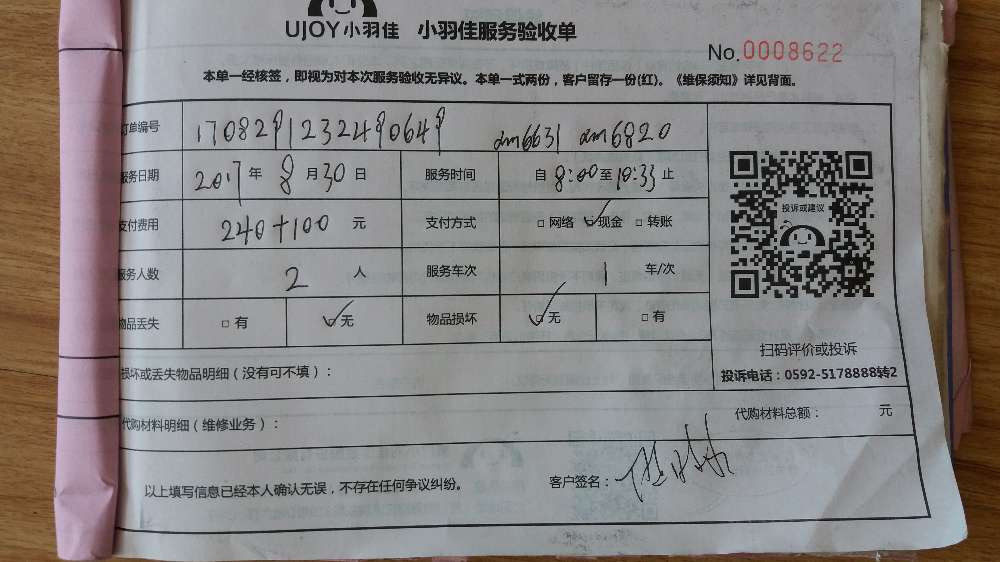 UJOY 小羽佳 小羽佳服务验收单
No.0008622
本单一经核签，即视为对本次服务验收无异议。本单一式两份，客户留存一份(红)。《维保须知》详见背面。
订单编号 1708291232490649 dm6631 dm6820
服务日期 2017 年 8 月 30 日 服务时间 自 8:00 至 10:33 止
支付费用 240+100 元 支付方式 □ 网络 ☑ 现金 □ 转账
服务人数 2 人 服务车次 1 车/次
物品丢失 □ 有 ☑ 无 物品损坏 ☑ 无 □ 有
投诉或建议
扫码评价或投诉
投诉电话：0592-5178888转2
损坏或丢失物品明细（没有可不填）：
代购材料明细（维修业务）： 代购材料总额： 元
以上填写信息已经本人确认无误，不存在任何争议纠纷。 客户签名：